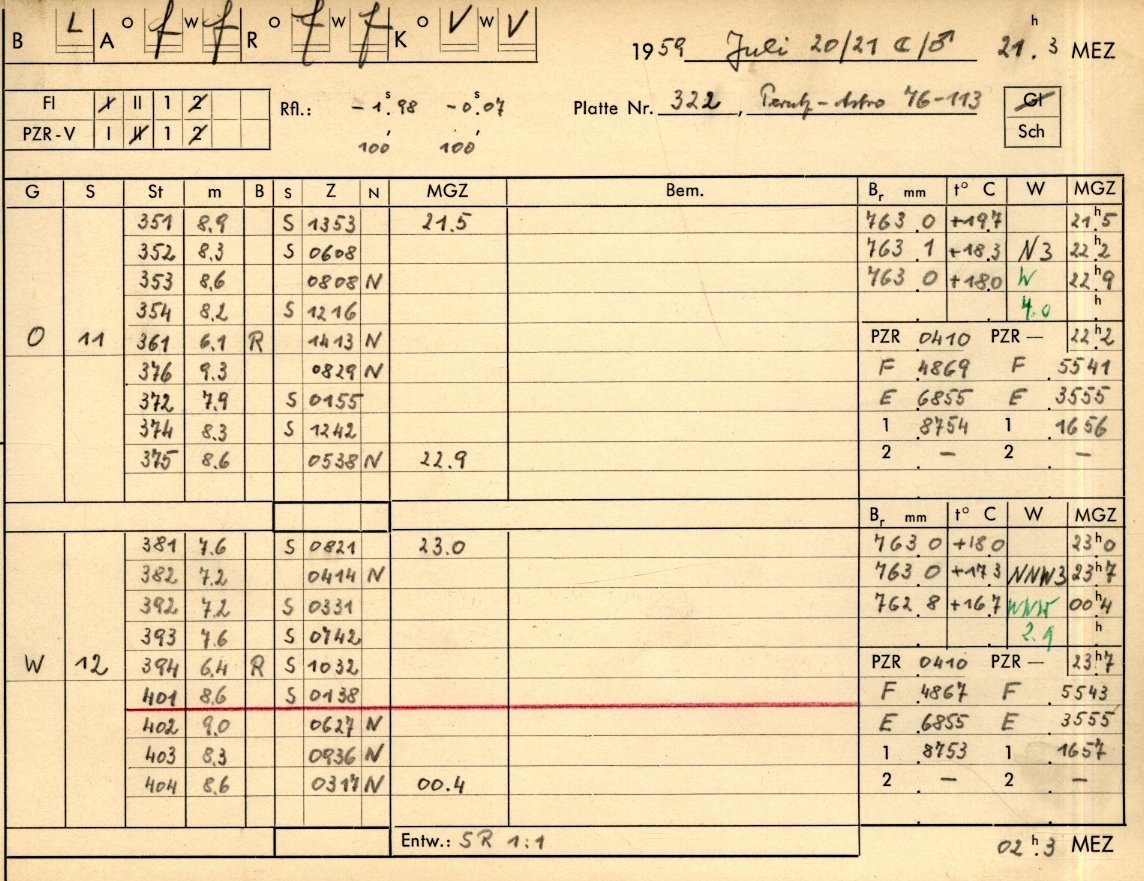 B L A O f W f R O f W f K O V W V
1959 Juli 20/21 ☾/♂ 21.h3 MEZ
FI I II 1 2
PZR-V I II 1 2
Rfl.: -1.s98 -0.s07
100 100
Platte Nr. 322, Perutz-Astro 76-113
Gl
Sch
G S St m B S Z N MGZ Bem. Br mm t° C W MGZ
351 8.9 S 1353 21.5 763.0 +19.7 21.h5
352 8.3 S 0608 763.1 +18.3 N3 22.h2
353 8.6 0808 N 763.0 +18.0 W 22.h9
354 8.2 S 1216 4.0 h
O 11 361 6.1 R 1413 N PZR 0410 PZR — 22.h2
376 9.3 0829 N F .4869 F .5541
372 7.9 S 0155 E .6855 E .3555
374 8.3 S 1242 1 .8754 1 .1656
375 8.6 0538 N 22.9 2 . — 2 . —
Br mm t° C W MGZ
381 7.6 S 0821 23.0 763.0 +18.0 23.h0
382 7.2 0414 N 763.0 +17.3 NNW3 23.h7
392 7.2 S 0331 762.8 +16.7 WNW 00.h4
393 7.6 S 0742 2.9 h
W 12 394 6.4 R S 1032 PZR 0410 PZR — 23.h7
401 8.6 S 0138 F .4867 F .5543
402 9.0 0627 N E .6855 E .3555
403 8.3 0936 N 1 .8753 1 .1657
404 8.6 0317 N 00.4 2 . — 2 . —
Entw.: SR 1:1 02.h3 MEZ